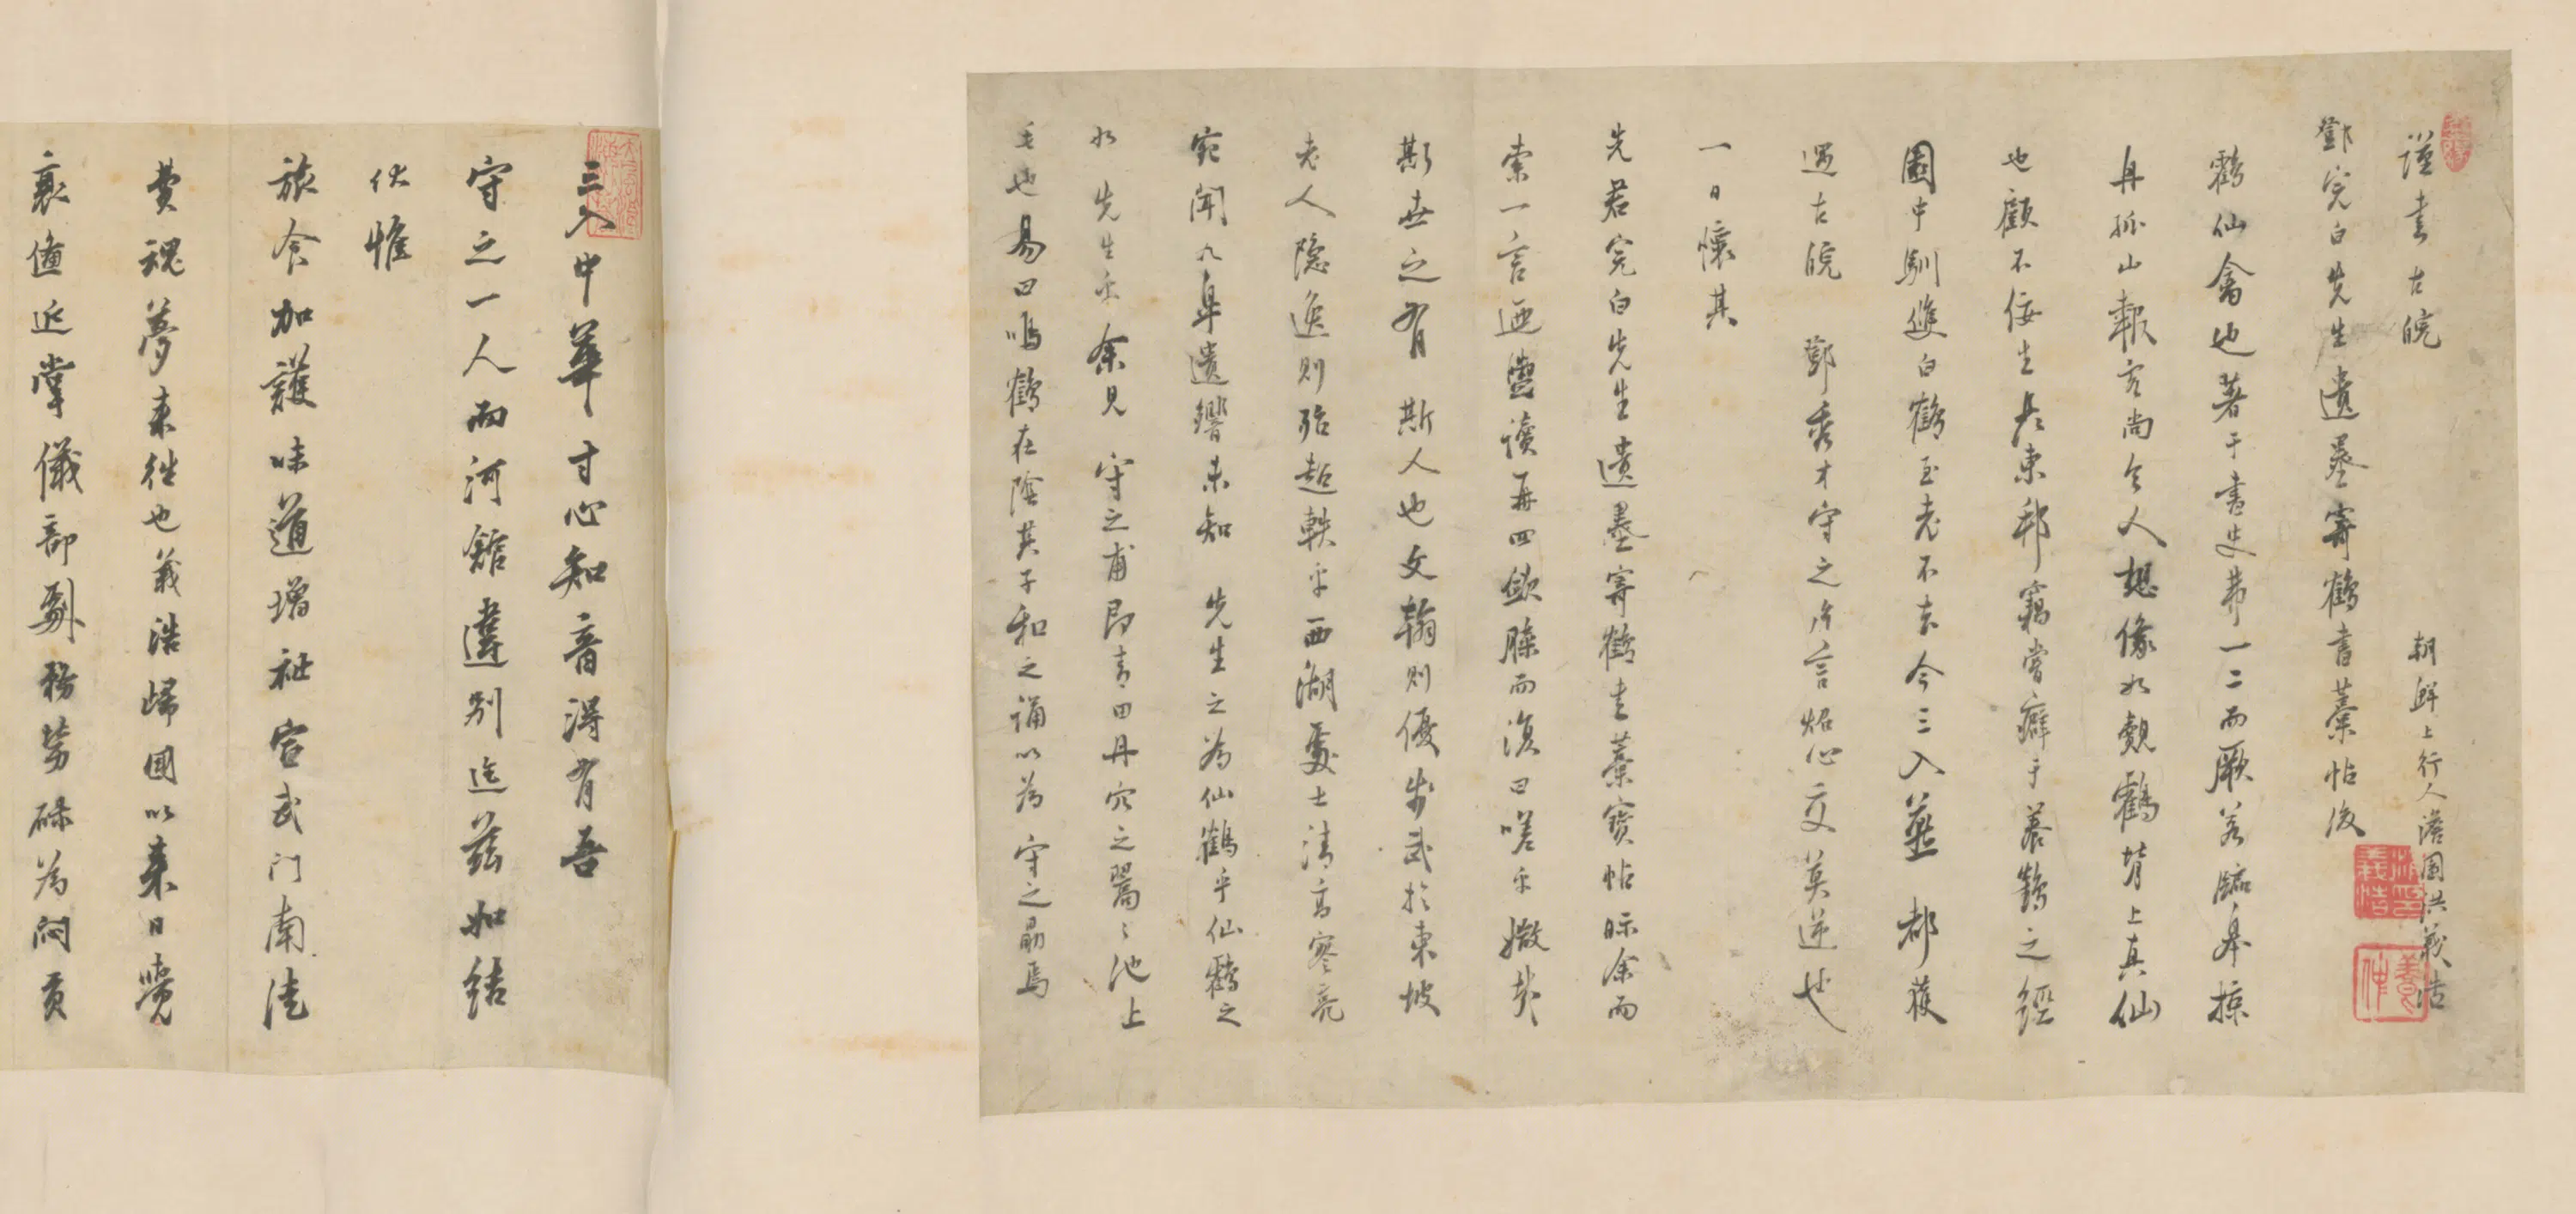 謹書古皖
鄧完白先生遺墨寄鶴書藁帖後
朝鮮上行人澹園洪義浩
鶴仙禽也著于書史茀一二而厥若臨皋掠
舟孤山報客尚令人想像如覿鶴背上真仙
也顧不佞生長東邦竊嘗癖于養鶴之經
園中馴雙白鶴至老不去今三入燕都獲
遇古皖 鄧秀才守之片言炤心交莫逆也
一日懷其
先君完白先生遺墨寄鶴書藁寶帖眎余而
索一言迺盥讀再四斂膝而復曰嗟乎媺哉
斯世之有斯人也文翰則優步武於東坡
老人隱逸則殆超軼乎西湖處士清高寥亮
宛聞九臯遺響未知 先生之為仙鶴乎仙鶴之
如 先生乎余見 守之甫即青田丹穴之翯翯池上
毛也易曰鳴鶴在陰其子和之誦以為 守之勗焉
三入中華寸心知音得有吾
守之一人而河舘遽別迄茲如結
伏惟
旅食加護味道增祉宣武門南法
費魂夢來往也義浩歸國以來日覺
衰傖近掌儀部劇務勞碌為悶貢